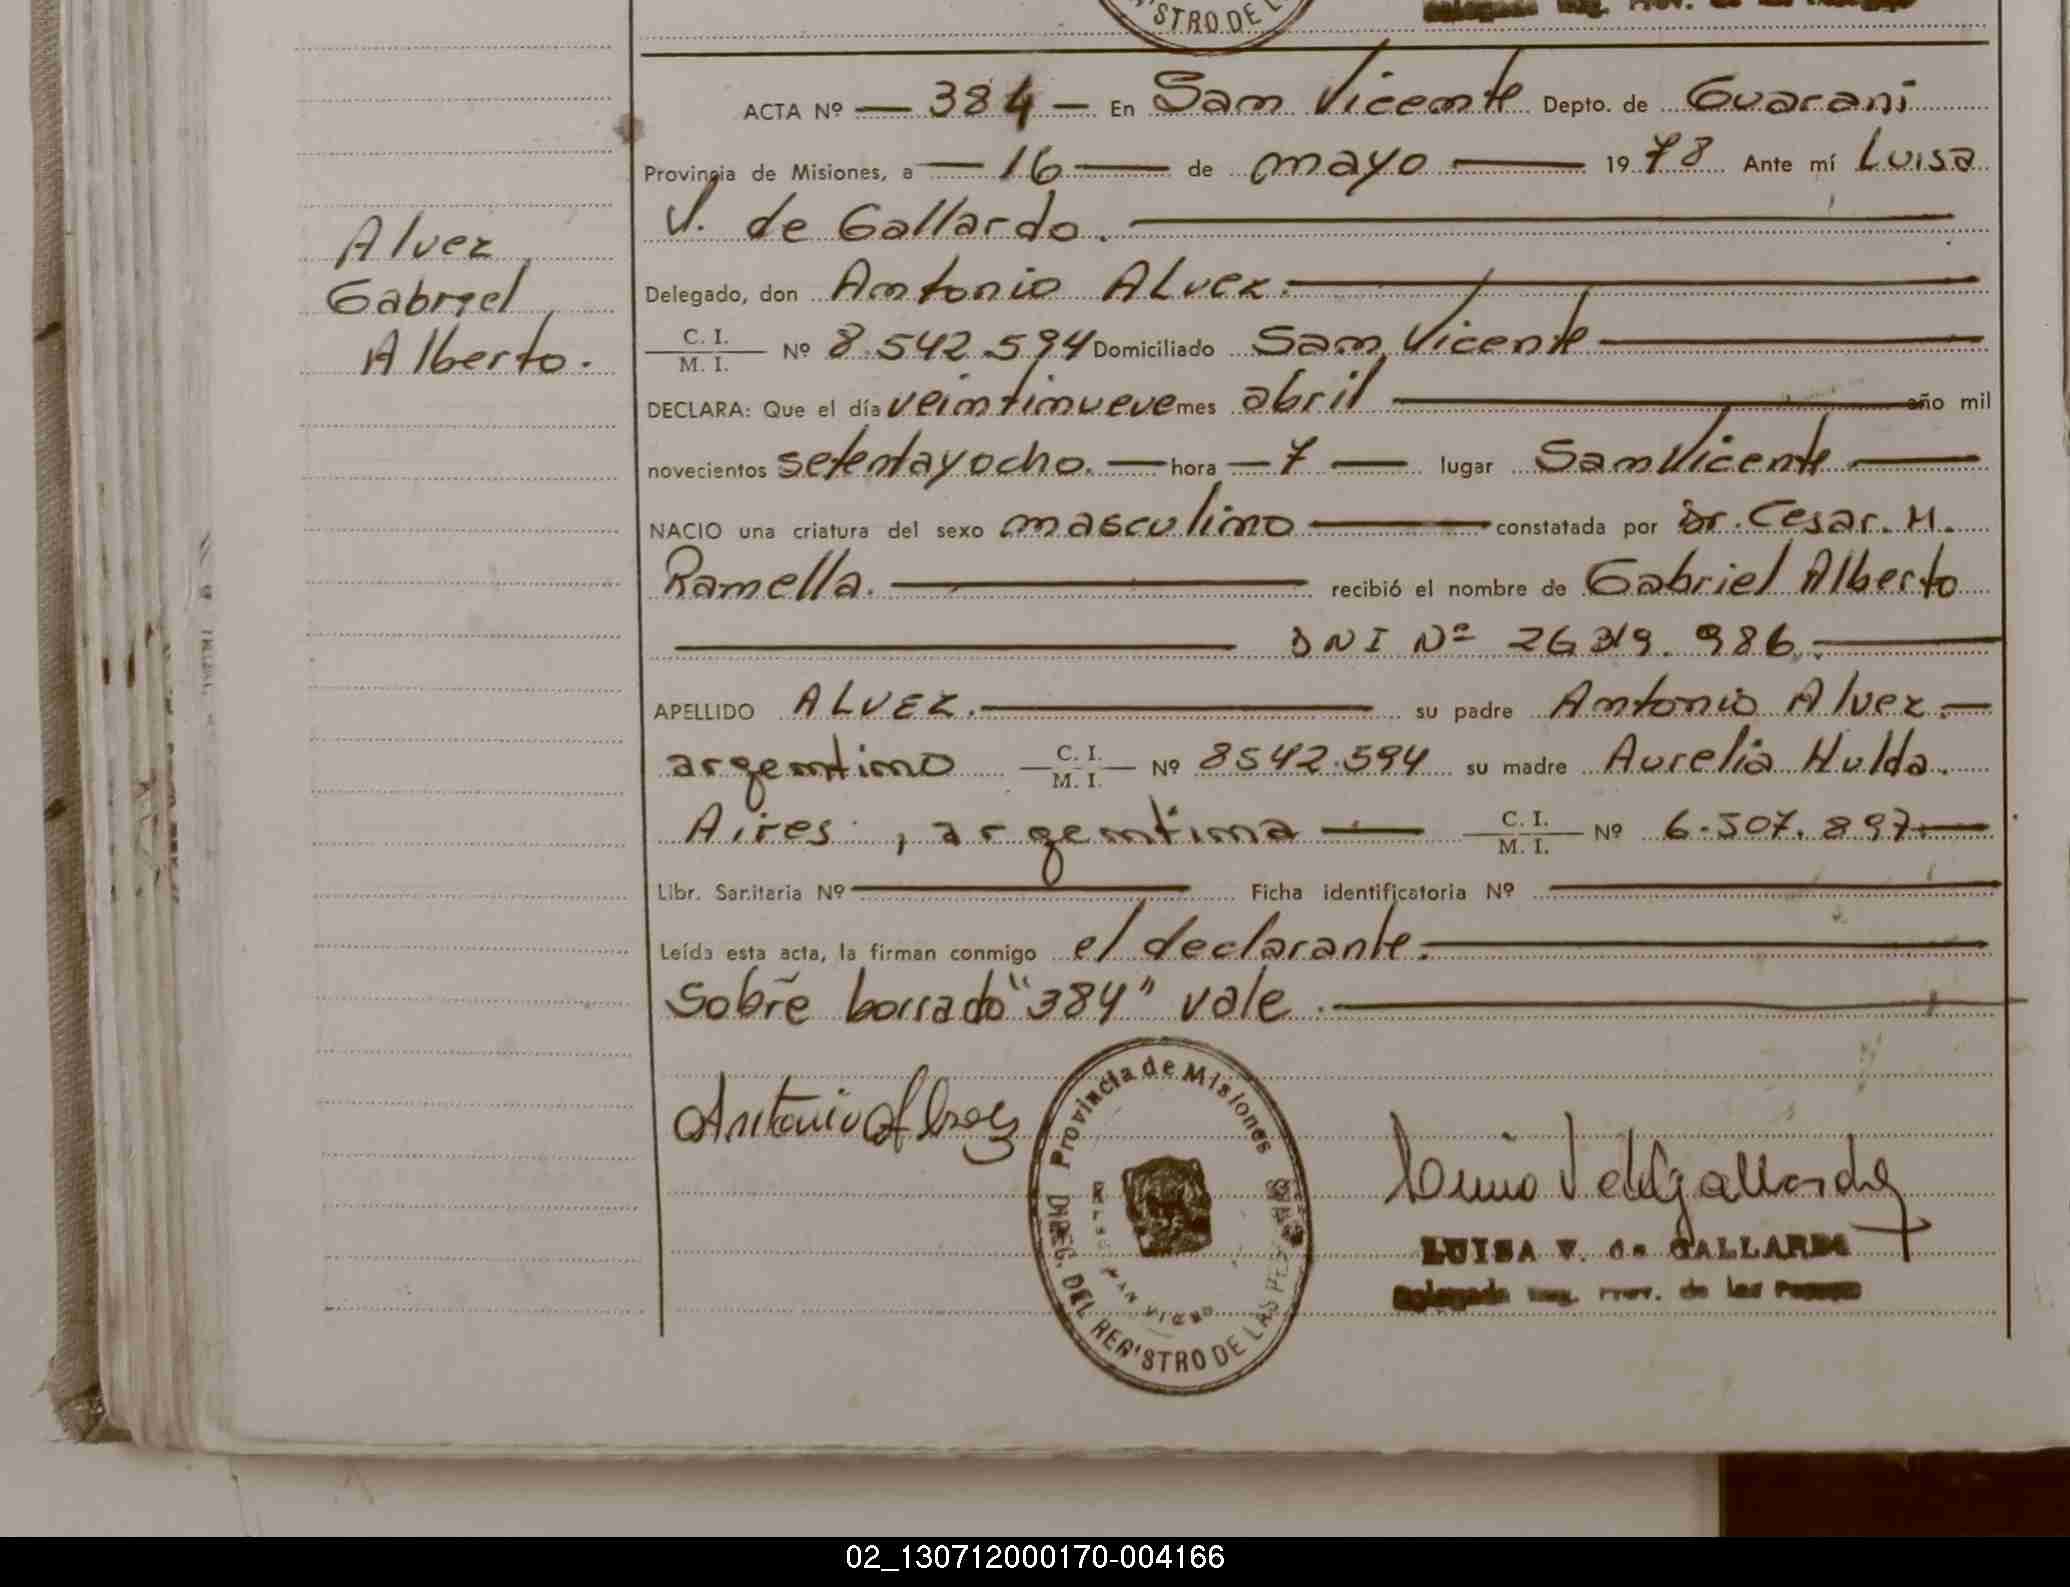 STRO DE L
ACTA Nº — 384 — En San Vicente Depto. de Guaraní
Provincia de Misiones, a — 16 — de mayo — 1978 Ante mí Luisa
V. de Gallardo.
Alvez
Gabriel
Alberto.
Delegado, don Antonio Alvez.
C. I.
M. I. Nº 8.542.594 Domiciliado San Vicente
DECLARA: Que el día veintinueve mes abril año mil
novecientos setentayocho. — hora — 7 — lugar San Vicente
NACIO una criatura del sexo masculino constatada por Dr. Cesar. H.
Ramella. recibió el nombre de Gabriel Alberto
DNI Nº 26.319.986.
APELLIDO ALVEZ. su padre Antonio Alvez.
argentino C. I.
M. I. Nº 8542.594 su madre Aurelia Hulda.
Aires, argentina — C. I.
M. I. Nº 6.507.897
Libr. Sanitaria Nº Ficha identificatoria Nº
Leída esta acta, la firman conmigo el declarante.
Sobre borrado "384" vale.
Antonio Alvez
Provincia de Misiones
DIREC. DEL REGISTRO DE LAS PE
LUISA V. de GALLARDO
Delegada Reg. Prov. de las Personas
02_130712000170-004166